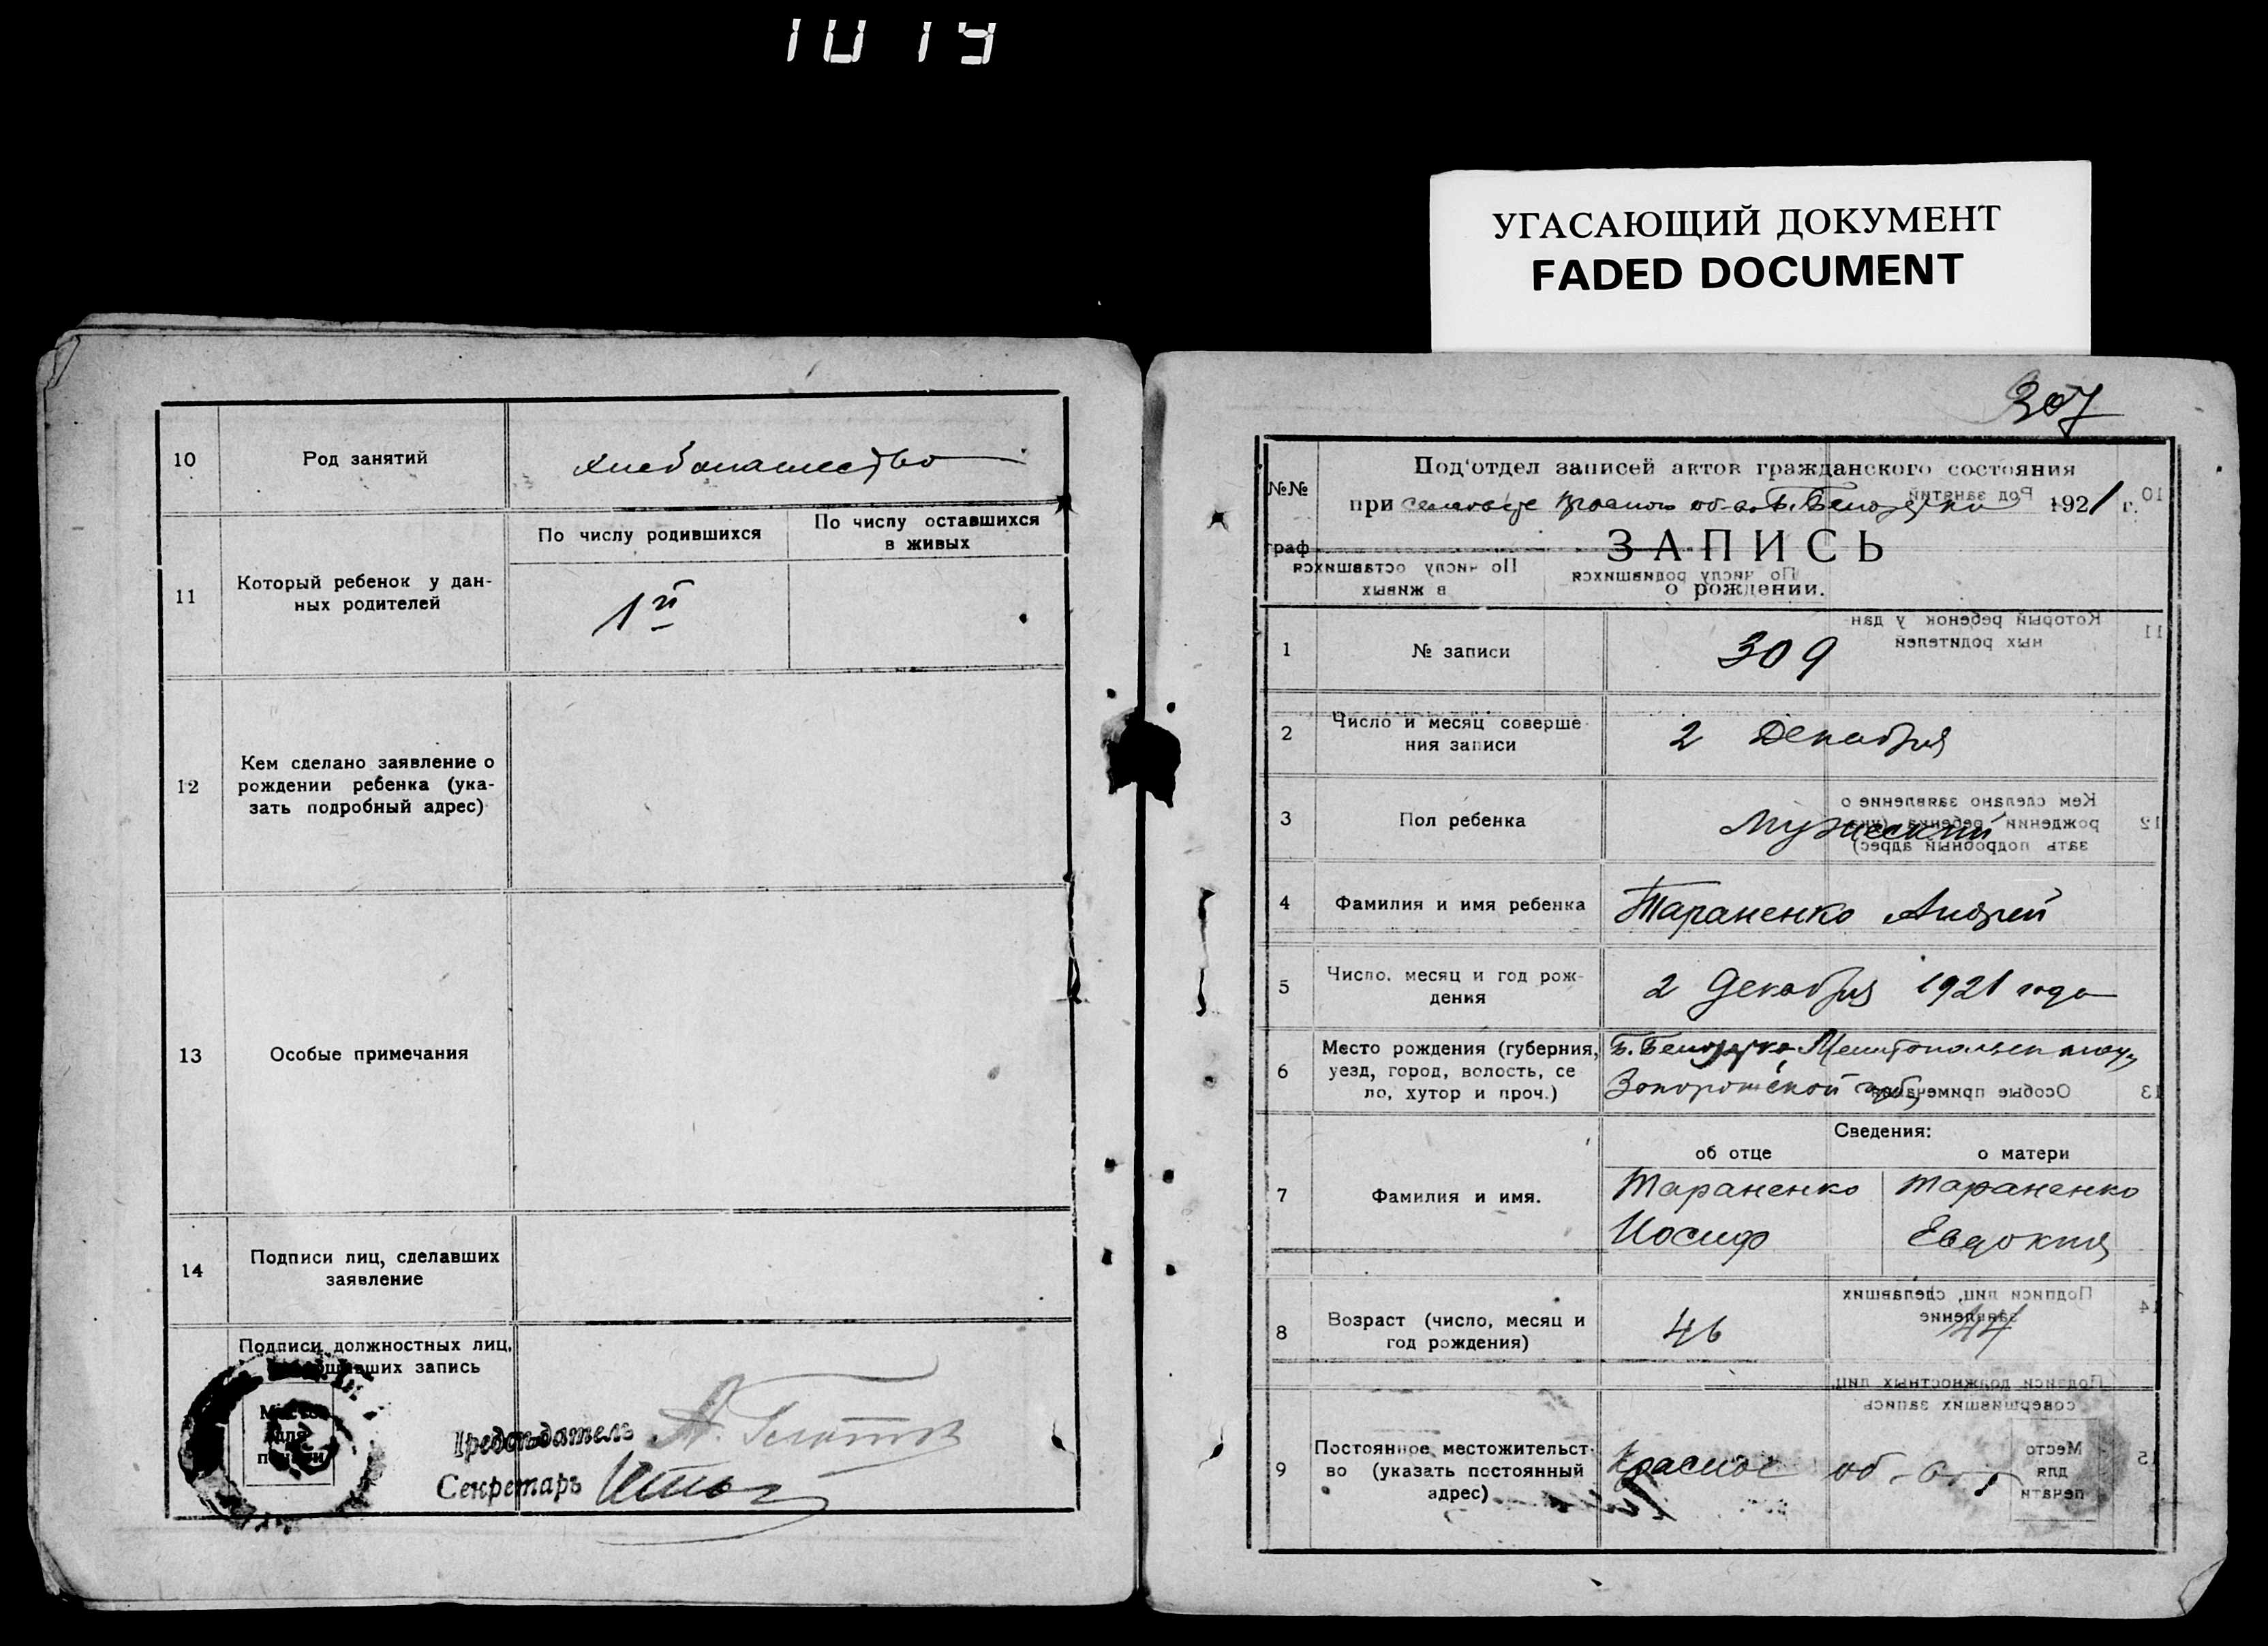 1019
УГАСАЮЩИЙ ДОКУМЕНТ
FADED DOCUMENT
10 Род занятий хлебопашество
11 Который ребенок у дан-
ных родителей
По числу родившихся
По числу оставшихся
в живых
1й
12 Кем сделано заявление о
рождении ребенка (ука-
зать подробный адрес)
13 Особые примечания
14 Подписи лиц, сделавших
заявление
Подписи должностных лиц,
совершивших запись
Место
для
печати
Председатель А.
Секретарь
307
№№
граф
Под'отдел записей актов гражданского состояния
при Красного об-ва Б. Белозерки 1921 г.
ЗАПИСЬ
о рождении.
1 № записи 309
2 Число и месяц соверше
ния записи 2 Декабря
3 Пол ребенка Мужеский
4 Фамилия и имя ребенка Тараненко Андрей
5 Число, месяц и год рож-
дения 2 Декабря 1921 года
6 Место рождения (губерния,
уезд, город, волость, се
ло, хутор и проч.)
Б. Белозерка Мелитопольск
Запорожской губ,
Сведения:
об отце о матери
7 Фамилия и имя.
Тараненко Тараненко
Иосиф Евдокия
8 Возраст (число, месяц и
год рождения) 46 44
9 Постоянное местожительст-
во (указать постоянный
адрес)
Красное об-во